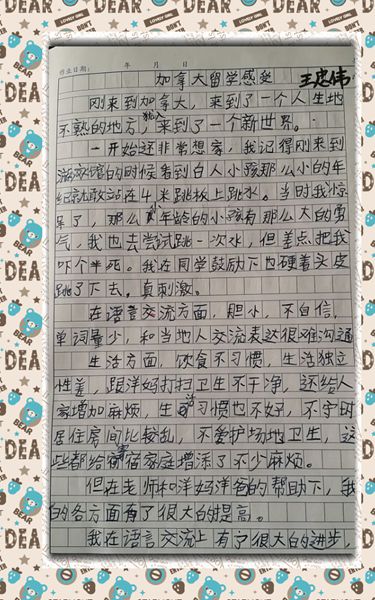 作业日期: 年 月 日
加拿大留学感受
刚来到加拿大,来到了一个人生地
不熟的地方,来到了一个新世界。
一开始还非常想家,我记得刚来到
游泳馆的时候看到白人小孩那么小的年
纪就敢站在4米跳板上跳水。当时我惊
呆了,那么小年龄的小孩有那么大的勇
气,我也去尝试跳一次水,但差点把我
吓个半死。我在同学鼓励下也硬着头皮
跳了下去。真刺激。
在语言交流方面,胆小,不自信,
单词量少,和当地人交流表达很难沟通
生活方面,饮食不习惯,生活独立
性差,跟洋妈打扫卫生不干净,还给人
家增加麻烦,生活习惯也不好,不守时
居住房间比较乱,不爱护场地卫生,这
些都给寄宿家庭增添了不少麻烦。
但在老师和洋妈洋爸的帮助下,我
的各方面有了很大的提高。
我在语言交流上有了很大的进步,
DEAR
BEAR
LOVELY GIRL